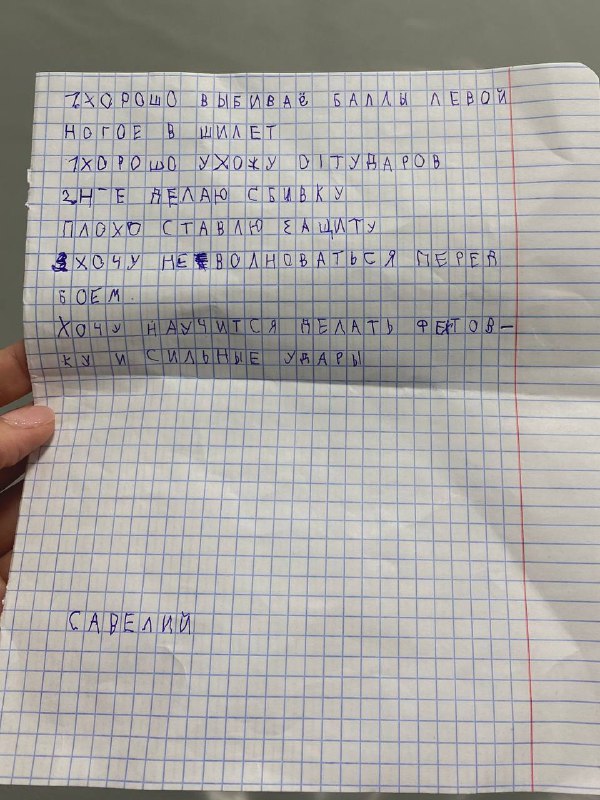 1ХОРОШО ВЫБИВАЁ БАЛЛЫ ЛЕВОЙ
НОГОЕ В ШИЛЕТ
1ХОРОШО УХОЖУ ОТ УДАРОВ
2НЕ ДЕЛАЮ СБИВКУ
ПЛОХО СТАВЛЮ ЗАЩИТУ
3ХОЧУ НЕ ВОЛНОВАТЬСЯ ПЕРЕД
БОЕМ.
ХОЧУ НАУЧИТСЯ ДЕЛАТЬ ФЕТОВ-
КУ И СИЛЬНЫЕ УДАРЫ
САВЕЛИЙ